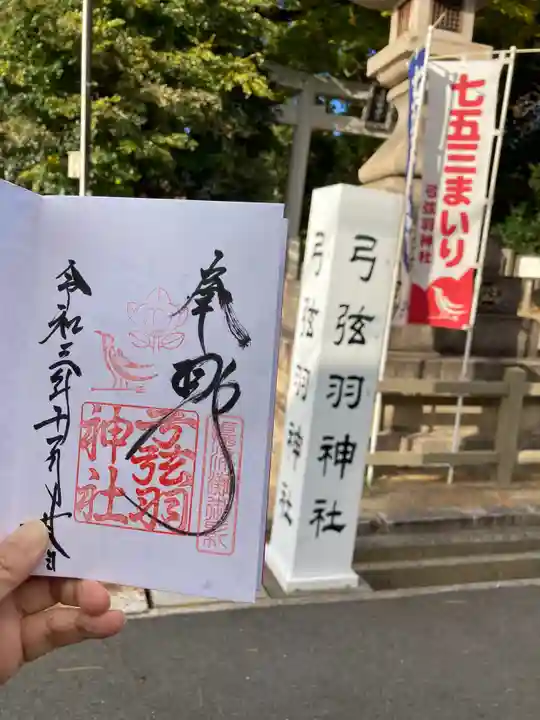 奉拝
令和三年十一月廿
弓弦羽
神社
弓弦羽神社
弓弦羽神社
七五三まいり
弓弦羽神社